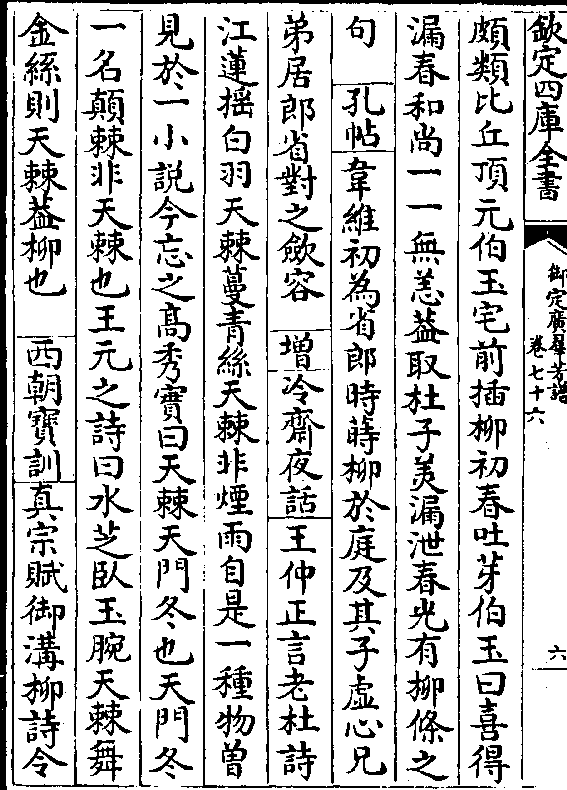 欽定四庫全書
御定廣羣芳譜
卷七十六
六
頗類比丘頂元伯玉宅前插柳初春吐芽伯玉曰喜得
漏春和尚一一無恙葢取杜子美漏泄春光有柳條之
句 孔帖 韋維初為省郎時蒔柳於庭及其子虛心兄
弟居郎省對之斂容 增 冷齋夜話 王仲正言老杜詩
江蓮搖白羽天棘蔓青絲天棘非煙雨自是一種物曾
見於一小說今忘之高秀實曰天棘天門冬也天門冬
一名顛棘非天棘也王元之詩曰水芝臥玉腕天棘舞
金絲則天棘葢柳也 西朝寶訓 真宗賦御溝柳詩令